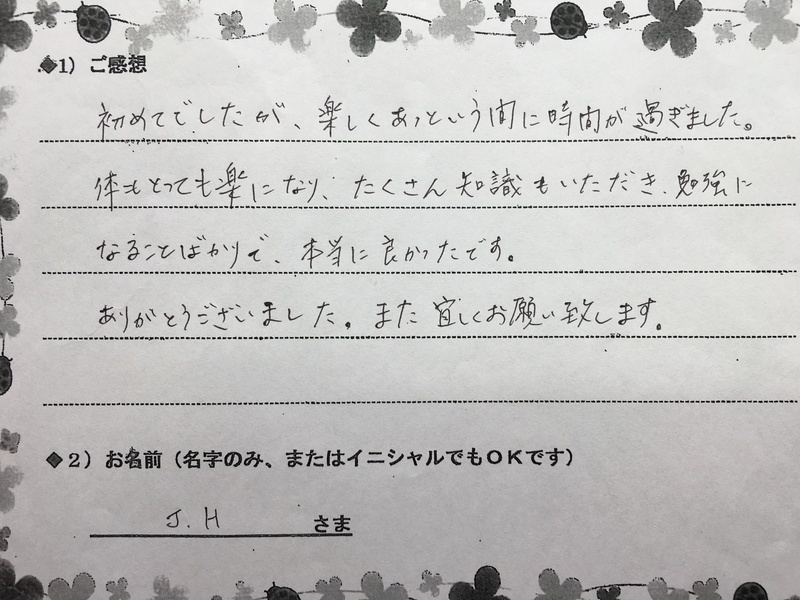 ◆1）ご感想
初めてでしたが、楽しくあっという間に時間が過ぎました。
体もとっても楽になり、たくさん知識もいただき、勉強に
なることばかりで、本当に良かったです。
ありがとうございました。また宜しくお願い致します。
◆2）お名前（名字のみ、またはイニシャルでもOKです）
J.H さま